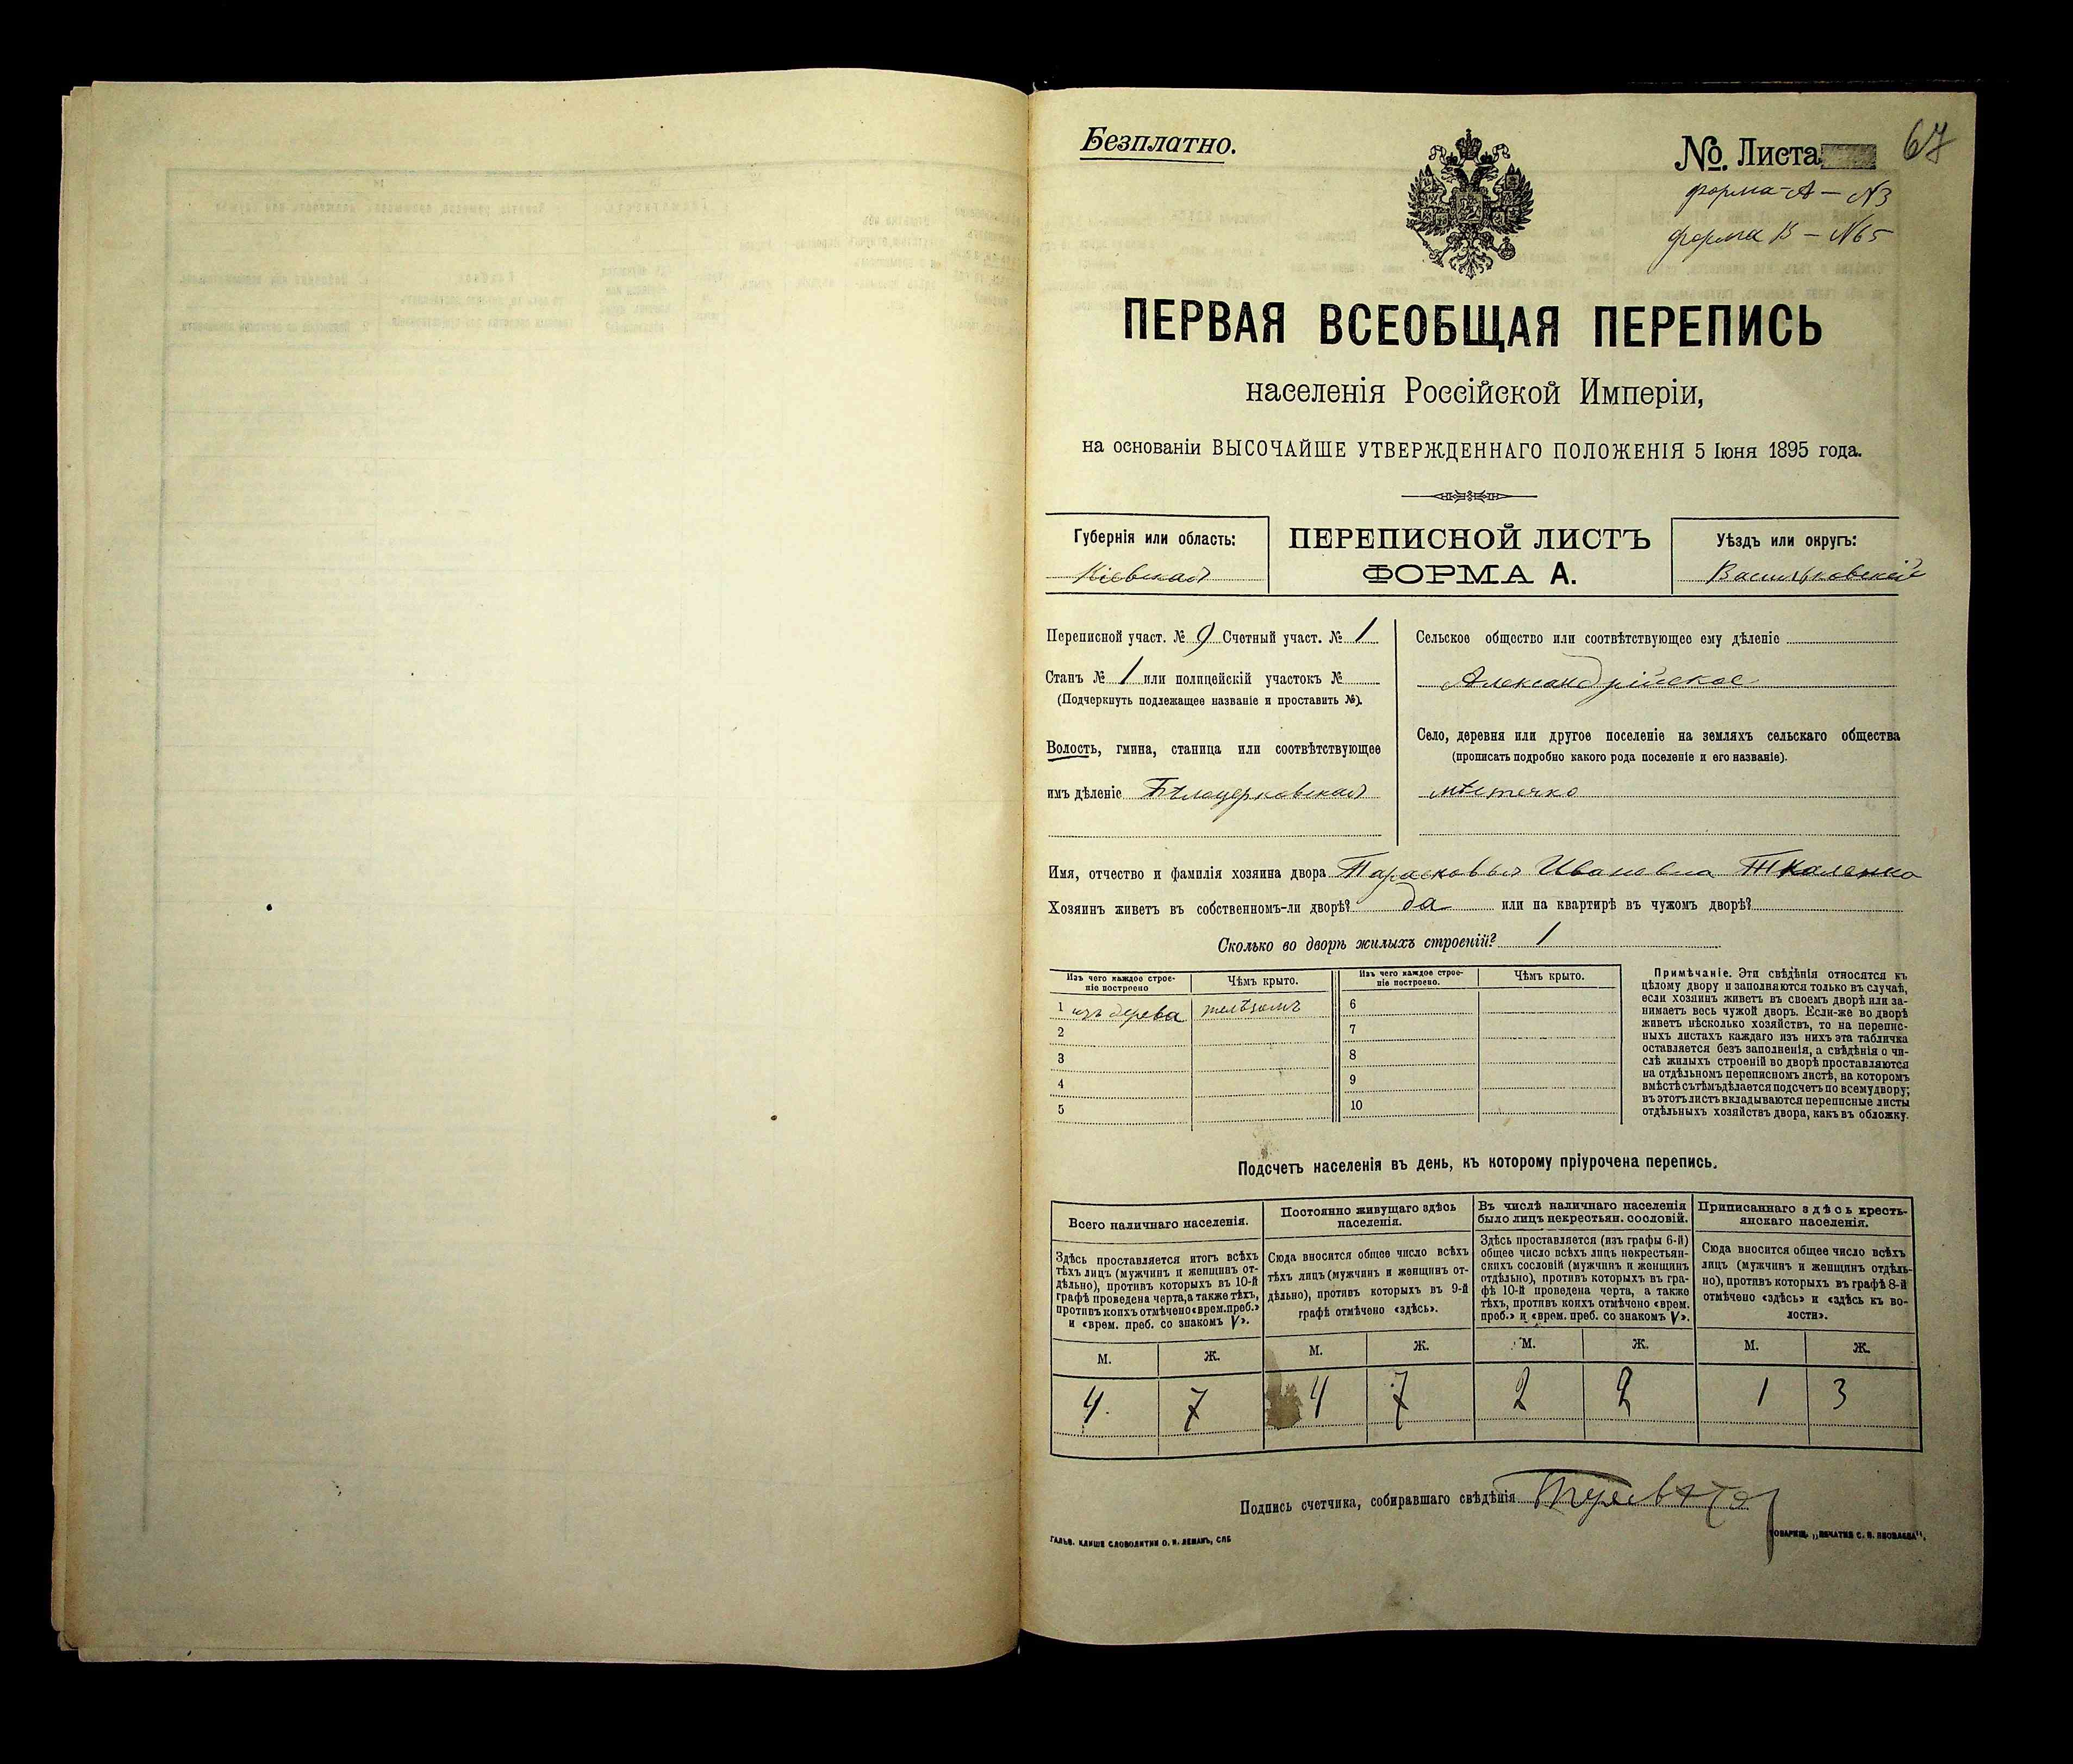 Безплатно.
№. Листа
67
форма-А-№3
форма В-№65
ПЕРВАЯ ВСЕОБЩАЯ ПЕРЕПИСЬ
населенія Россійской Имперіи,
на основаніи ВЫСОЧАЙШЕ УТВЕРЖДЕННАГО ПОЛОЖЕНІЯ 5 Іюня 1895 года.
Губернія или область:
Кіевская
ПЕРЕПИСНОЙ ЛИСТЪ
ФОРМА А.
Уѣздъ или округъ:
Васильковскій
Переписной участ. № 9 Счетный участ. № 1
Станъ № 1 или полицейскій участокъ №
(Подчеркнуть подлежащее названіе и проставить №).
Волость, гмина, станица или соотвѣтствующее
имъ дѣленіе Бѣлоцерковская
Сельское общество или соотвѣтствующее ему дѣленіе
Александрійское
Село, деревня или другое поселеніе на земляхъ сельскаго общества
(прописать подробно какого рода поселеніе и его названіе).
мѣстечко
Имя, отчество и фамилія хозяина двора Парасковья Ивановна Ткаленко
Хозяинъ живетъ въ собственномъ-ли дворѣ? да или на квартирѣ въ чужомъ дворѣ?
Сколько во дворѣ жилыхъ строеній? 1
Изъ чего каждое строе-
ніе построено
Чѣмъ крыто.
Изъ чего каждое строе-
ніе построено.
Чѣмъ крыто.
1 изъ дерева желѣзомъ
2
3
4
5
6
7
8
9
10
Примѣчаніе. Эти свѣдѣнія относятся къ
цѣлому двору и заполняются только въ случаѣ,
если хозяинъ живетъ въ своемъ дворѣ или за-
нимаетъ весь чужой дворъ. Если-же во дворѣ
живетъ нѣсколько хозяйствъ, то на перепис-
ныхъ листахъ каждаго изъ нихъ эта табличка
оставляется безъ заполненія, а свѣдѣнія о чи-
слѣ жилыхъ строеній во дворѣ проставляются
на отдѣльномъ переписномъ листѣ, на которомъ
вмѣстѣ съ тѣмъ дѣлается подсчетъ по всему двору;
въ этотъ листъ вкладываются переписные листы
отдѣльныхъ хозяйствъ двора, какъ въ обложку.
Подсчетъ населенія въ день, къ которому пріурочена перепись.
Всего наличнаго населенія.
Здѣсь проставляется итогъ всѣхъ
тѣхъ лицъ (мужчинъ и женщинъ от-
дѣльно), противъ которыхъ въ 10-й
графѣ проведена черта, а также тѣхъ,
противъ коихъ отмѣчено «врем. преб.»
и «врем. преб. со знакомъ V».
Постоянно живущаго здѣсь
населенія.
Сюда вносится общее число всѣхъ
тѣхъ лицъ (мужчинъ и женщинъ от-
дѣльно), противъ которыхъ въ 9-й
графѣ отмѣчено «здѣсь».
Въ числѣ наличнаго населенія
было лицъ некрестьян. сословій.
Здѣсь проставляется (изъ графы 6-й)
общее число всѣхъ лицъ некрестьян-
скихъ сословій (мужчинъ и женщинъ
отдѣльно), противъ которыхъ въ гра-
фѣ 10-й проведена черта, а также
тѣхъ, противъ коихъ отмѣчено «врем.
преб.» и «врем. преб. со знакомъ V».
Приписаннаго здѣсь кресть-
янскаго населенія.
Сюда вносится общее число всѣхъ
лицъ (мужчинъ и женщинъ отдѣль-
но), противъ которыхъ въ графѣ 8-й
отмѣчено «здѣсь» и «здѣсь къ во-
лости».
М. Ж. М. Ж. М. Ж. М. Ж.
4 7 4 7 2 2 1 3
Подпись счетчика, собиравшаго свѣдѣнія
ГАЛЬВ. КЛИШЕ СЛОВОЛИТНИ О. И. ЛЕМАНЪ, СПБ
ТОВАРИЩ. „ПЕЧАТНЯ С. П. ЯКОВЛЕВА".